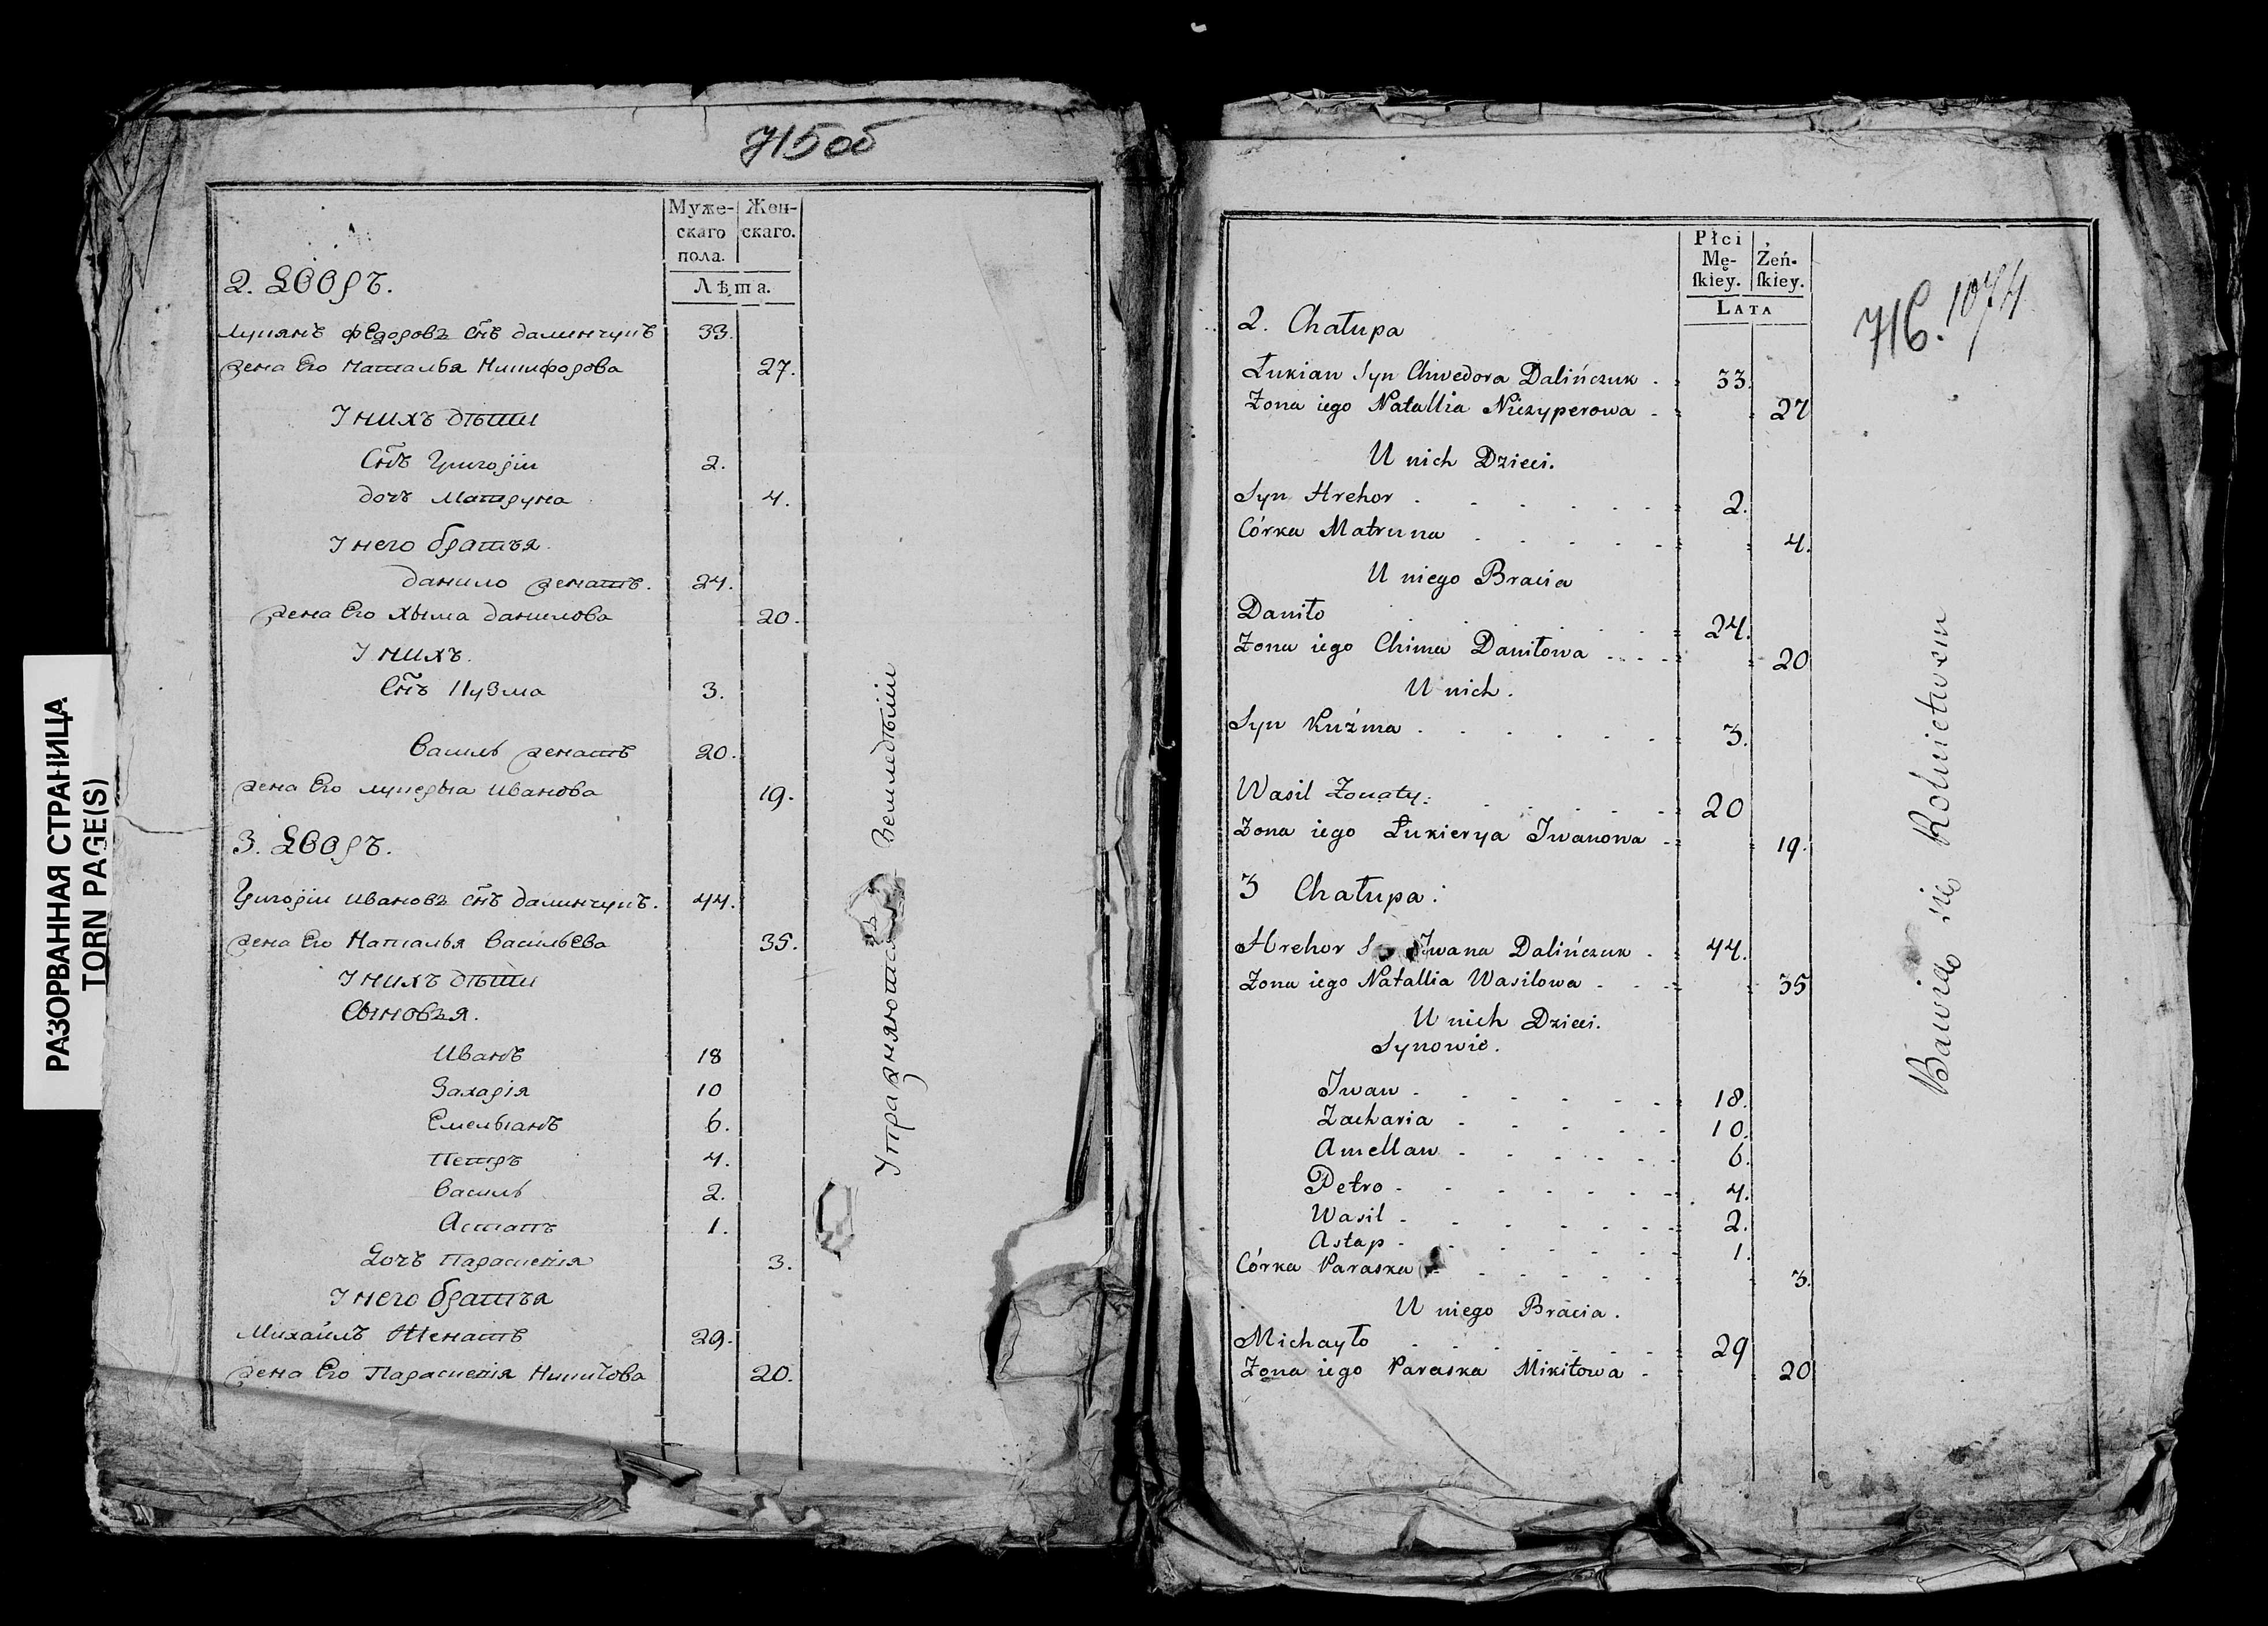 РАЗОРВАННАЯ СТРАНИЦА
TORN PAGE(S)
715 об
Муже-скаго пола. Жен-скаго.
Лѣта.
2. Дворъ.
Лукянъ Федоровъ снъ Далинчукъ 33.
жена Его Наталья Никифорова 27.
У нихъ дѣти
Снъ Григоріи 2.
дочъ Матруна 4.
У него братья.
Данило женатъ. 24.
жена Его Хыма Данилова 20.
У нихъ.
Снъ Кузма 3.
Василь женатъ 20.
жена Его Лукерыа Иванова 19.
3. Дворъ.
Григоріи Ивановъ снъ Далинчукъ. 44.
жена Его Наталья Васильева 35.
У нихъ дѣти
Сыновья.
Иванъ 18
Захарія 10
Емельıанъ 6.
Петръ 4.
Василь 2.
Астапъ 1.
Дочъ Параскевія 3.
У него братъя
Михайлъ Женатъ 29.
жена Его Параскевія Никитова 20.
Упражняются Земледѣліи
716. 1074
Płci Mę-ſkiey. Żeń-ſkiey.
LATA
2. Chałupa
Łukian Syn Chwedora Dalińczuk 33.
Żona iego Natallia Niczyperowa 27
U nich Dzieci.
Syn Hrehor 2.
Córka Matruna 4.
U niego Bracia
Daniło 24.
Żona iego Chima Daniłowa 20
U nich.
Syn Kuźma 3.
Wasil Żonaty: 20
Żona iego Łukierya Iwanowa 19.
3 Chałupa:
Hrehor Iwana Dalińczuk 44.
Żona iego Natallia Wasilowa 35
U nich Dzieci.
Synowie.
Iwan 18.
Zacharia 10.
Amellan 6.
Petro 4.
Wasil 2.
Astap 1.
Córka Paraska 3.
U niego Bracia.
Michayło 29
Żona iego Paraska Mikitowa 20
Bawią się Rolnictwem